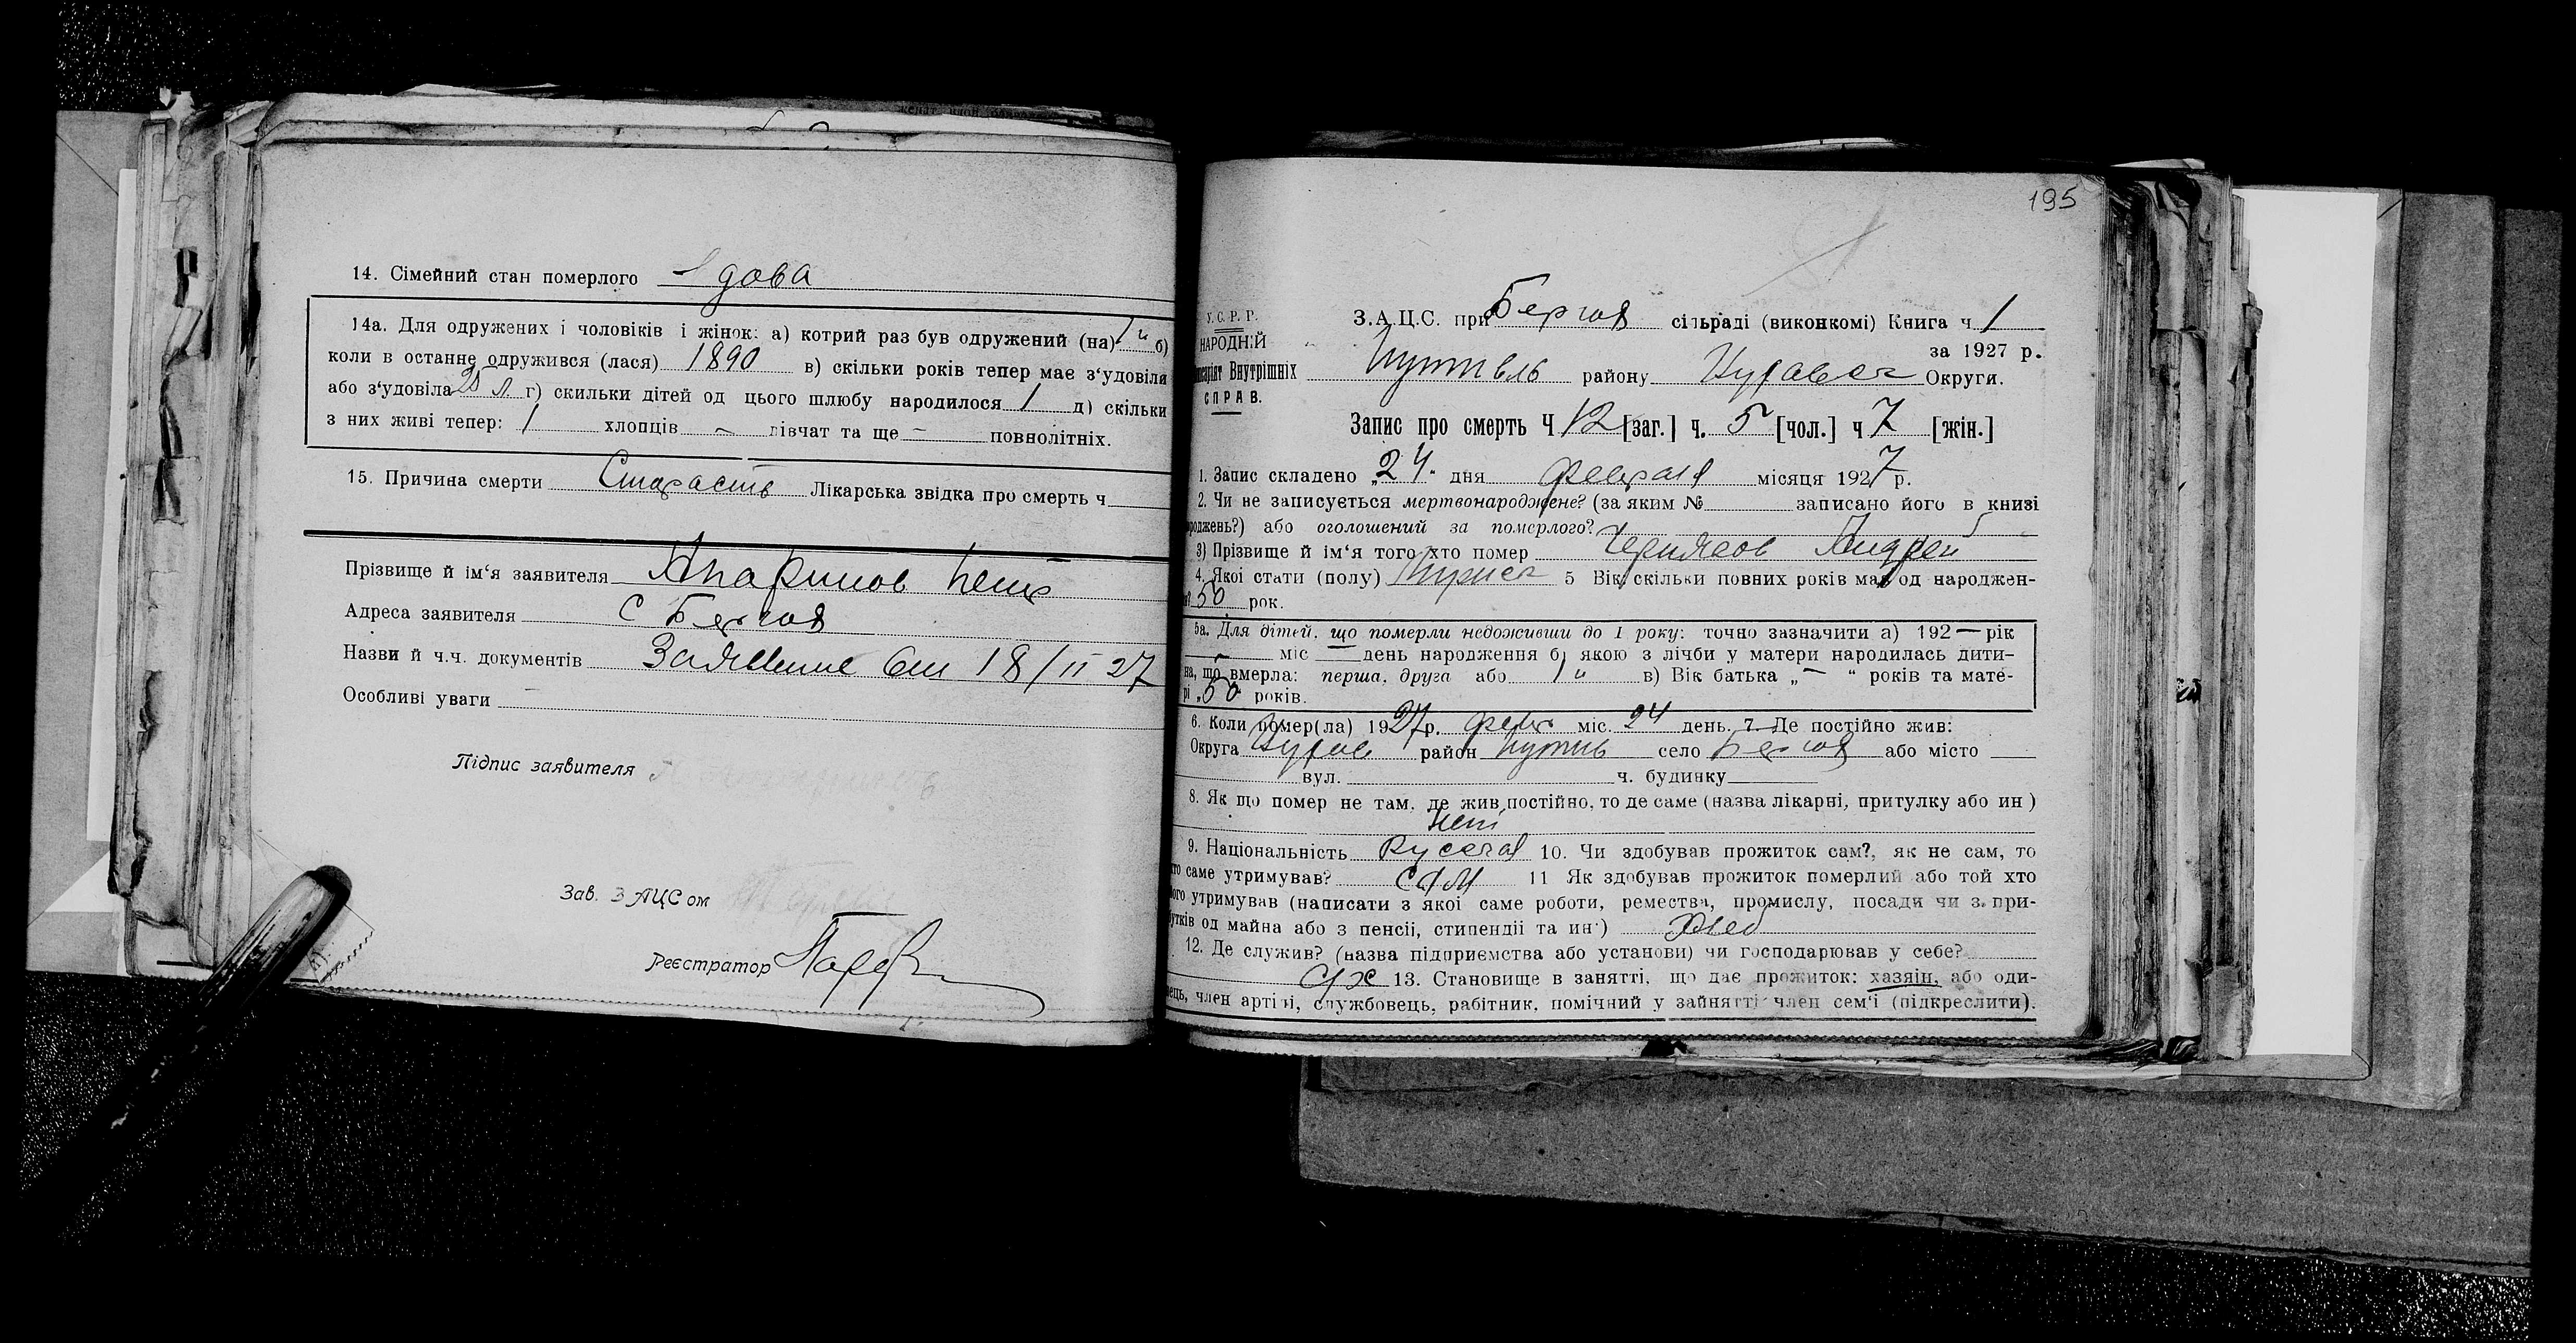 14. Сімейний стан померлого Вдова
14а. Для одружених і чоловіків і жінок: а) котрий раз був одружений (на) 1й б)
коли в останнє одружився (лася) 1890 в) скільки років тепер має з‘удовіли
або з‘удовіла 25 л. г) скильки дітей од цього шлюбу народилося 1 д) скільки
з них живі тепер: 1 хлопців – дівчат та ще – повнолітніх.
15. Причина смерти Старасть Лікарська звідка про смерть ч
Прізвище й ім‘я заявителя Апаринов Петр
Адреса заявителя С Берюх
Назви й ч.ч. документів Заявление от 18/II 27
Особливі уваги –
Підпис заявителя
Зав. ЗАЦСом
Реєстратор
195
У.С.Р.Р.
НАРОДНІЙ
Внутрішніх
СПРАВ.
З.А.Ц.С. при сільраді (виконкомі) Книга ч 1
за 1927 р.
Путивль району Округи.
Запис про смерть Ч 12 [заг.] ч. 5 [чол.] ч 7 [жін.]
1. Запис складено „24„ дня февраля місяця 1927 р.
2. Чи не записується мертвонароджене? (за яким № записано його в книзі
роджень?) або оголошений за померлого?
3) Прізвище й ім‘я того хто помер Черняков Андрей
4. Якої стати (полу) Мужск 5 Вік скільки повних років мав од народжен-
50 рок.
5а. Для дітей, що померли недоживши до 1 року: точно зазначити а) 192 — рік
— міс — день народження б) якою з лічби у матери народилась дити-
на, що вмерла: перша, друга або 1 й в) Вік батька „—“ років та мате-
рі „50 років.
6. Коли помер(ла) 1927 р. февр міс. 24 день. 7. Де постійно жив:
Округа район Путив село або місто
вул. ч. будинку
8. Як що помер не там, де жив постійно, то де саме (назва лікарні, притулку або ин )
нет
9. Національність Руская 10. Чи здобував прожиток сам?, як не сам, то
то саме утримував? сам 11 Як здобував прожиток померлий або той хто
його утримував (написати з якої саме роботи, ремества, промислу, посади чи з при-
утків од майна або з пенсії, стипендії та ин·) Хлеб
12. Де служив? (назва підприемства або установи) чи господарював у себе?
с/х 13. Становище в занятті, що дає прожиток: хазяін, або оди-
нець, член артілі, службовець, рабітник, помічний у зайнятті член сем‘ї (підкреслити).